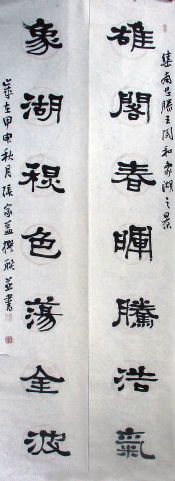 集南昌滕王阁和象湖之景
雄閣春暉騰浩氣
象湖稳色蕩金波
歲在甲申秋月張家益撰聯並書